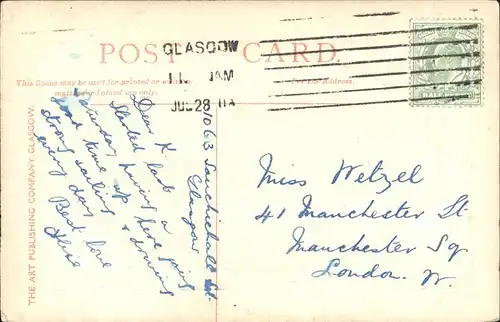 POST CARD.
This Space may be used for printed or written
matter for Inland use only.
For the Address.
GLASGOW
11 AM
JUL 28 11
THE ART PUBLISHING COMPANY, GLASGOW.
1063 Sauchiehall St.
Glasgow
Dear K.
Started last
Saturday, having a
good time up here going
strong sailing & driving
every day
Best love
Elsie
Miss Wetzel
41 Manchester St
Manchester Sq
London. W.